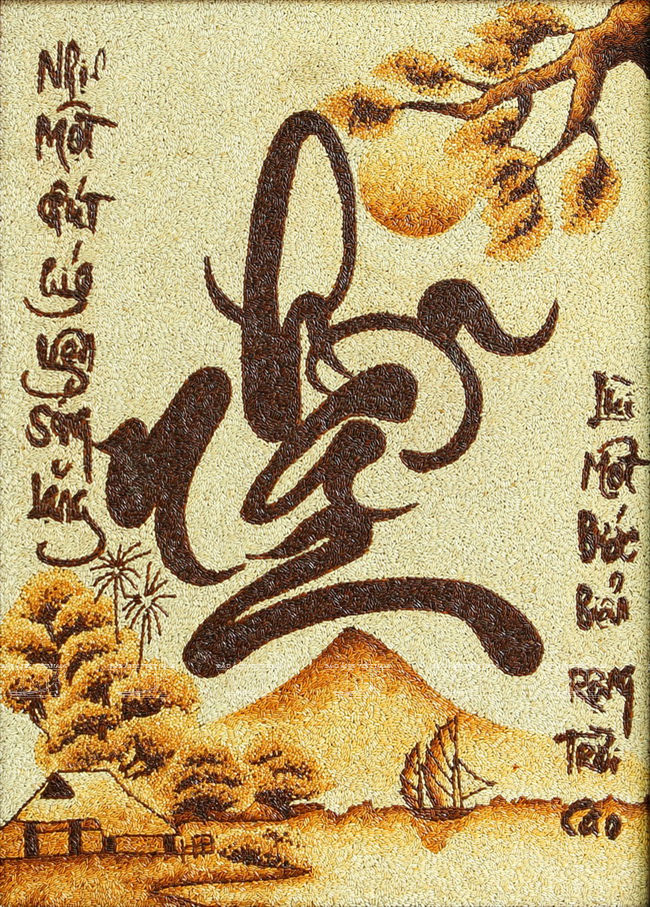 Nhịn Một Phút Gió Yên Sóng Lặng
Lùi Một Bước Biển Rộng Trời Cao